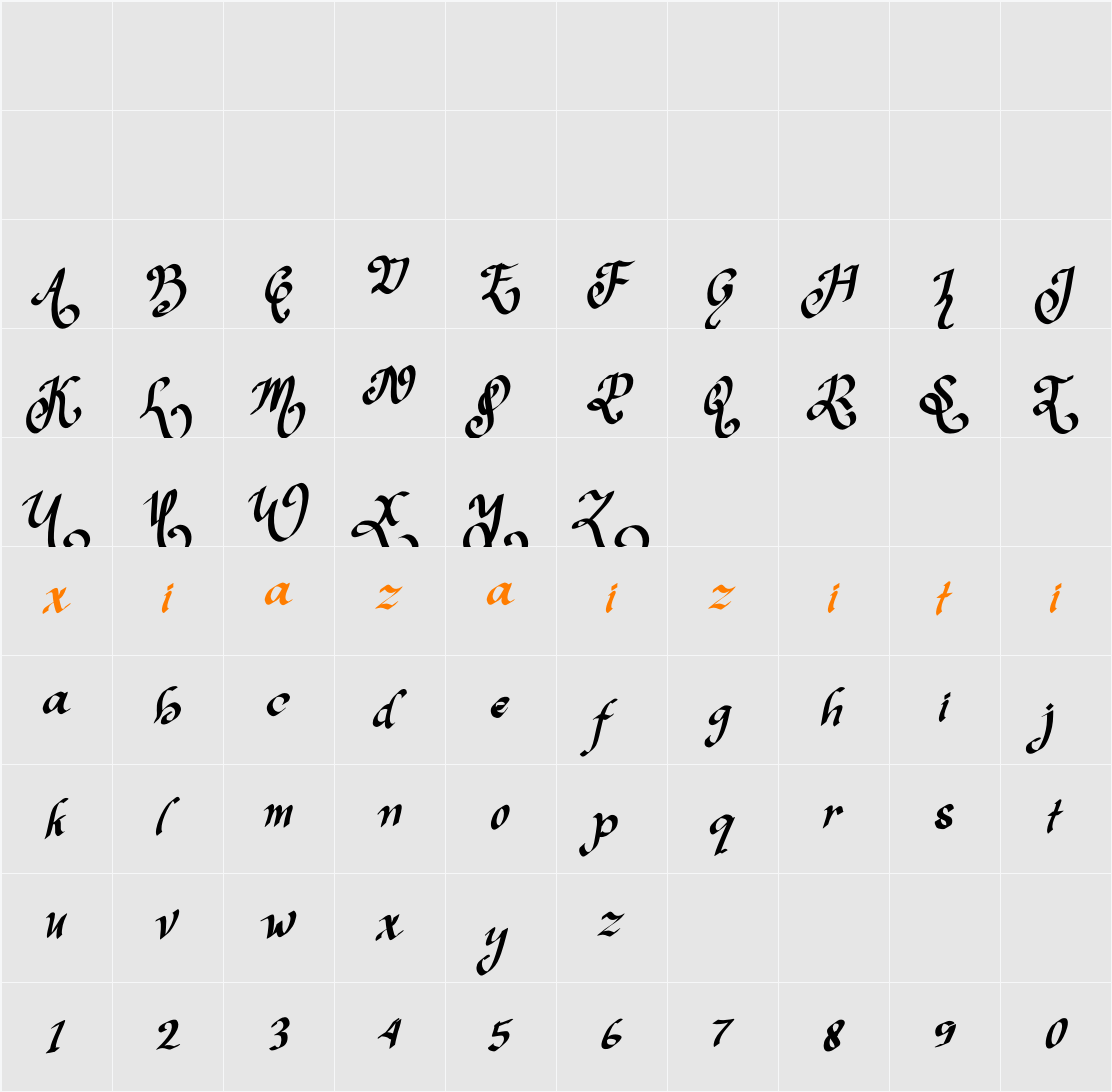 A B C D E F G H I J
K L M N O P Q R S T
U V W X Y Z
x i a z a i z i t i
a b c d e f g h i j
k l m n o p q r s t
u v w x y z
1 2 3 4 5 6 7 8 9 0